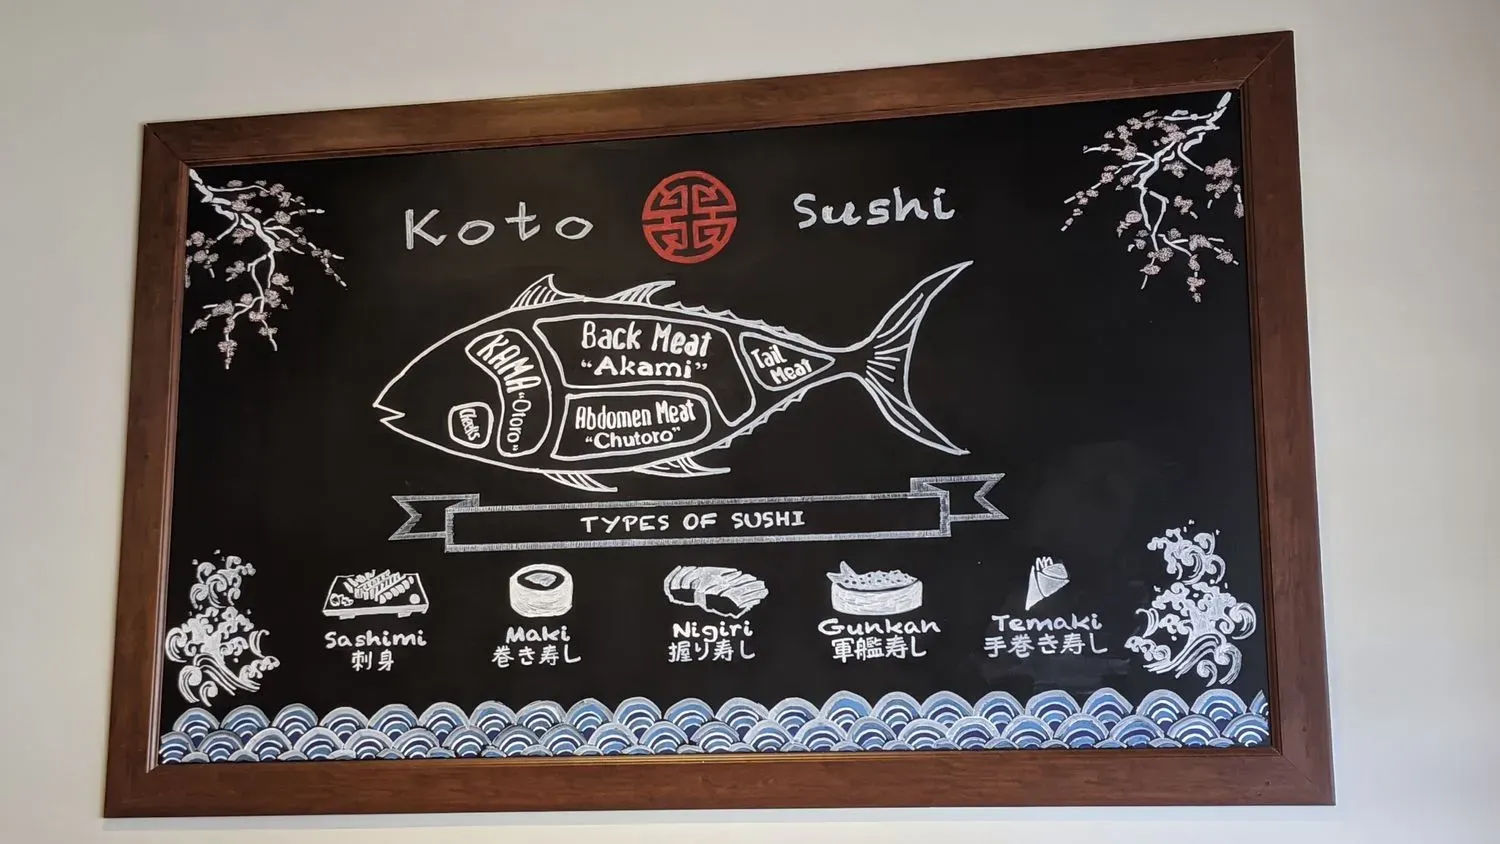 Koto Sushi
KAMA "Otoro"
Back Meat
"Akami"
Tail
Meat
Cheeks
Abdomen Meat
"Chutoro"
TYPES OF SUSHI
Sashimi
刺身
Maki
巻き寿し
Nigiri
握り寿し
Gunkan
軍艦寿し
Temaki
手巻き寿し